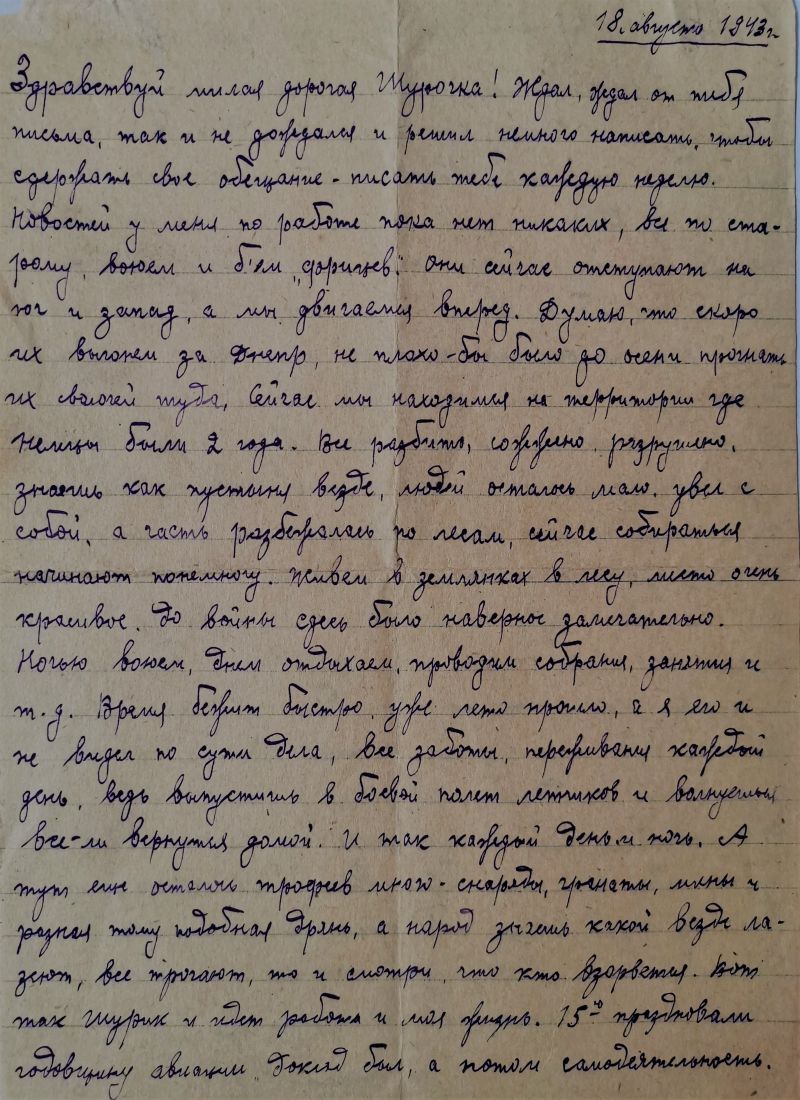 18. августа 1943 г.
Здравствуй милая дорогая Шурочка! Ждал, ждал от тебя
письма, так и не дождался и решил немного написать, чтобы
сдержать свое обещание - писать тебе каждую неделю.
Новостей у меня по работе пока нет никаких, все по ста-
рому, воюем и бьем „фрицев“. Они сейчас отступают на
юг и запад, а мы двигаемся вперед. Думаю, что скоро
их выгоним за Днепр, не плохо-бы было до осени прогнать
их сволочей туда, Сейчас мы находимся на территории где
немцы были 2 года. Все разбито, сожжено, разрушено,
знаешь как пустыня везде, людей осталось мало, увел с
собой, а часть разбежалась по лесам, сейчас собираться
начинают понемногу. Живем в землянках в лесу, место очень
красивое. До войны сдесь было наверное замечательно.
Ночью воюем, днем отдыхаем, проводим собрания, занятия и
т.д. Время бежит быстро, уже лето прошло, а я его и
не видел по сути дела, все заботы, переживания каждый
день, ведь выпустишь в боевой полет летчиков и волнуешься
все-ли вернутся домой. И так каждый день и ночь. А
тут еще осталось трофеев много - снаряды, гранаты, мины и
разная тому подобная дрянь, а народ знаешь какой везде ла-
зеют, все трогают, то и смотри, что кто взорвется. Вот
так Шурик и идет работа и моя жизнь. 15-го праздновали
годовщину авиации. Доклад был, а потом самодеятельность.